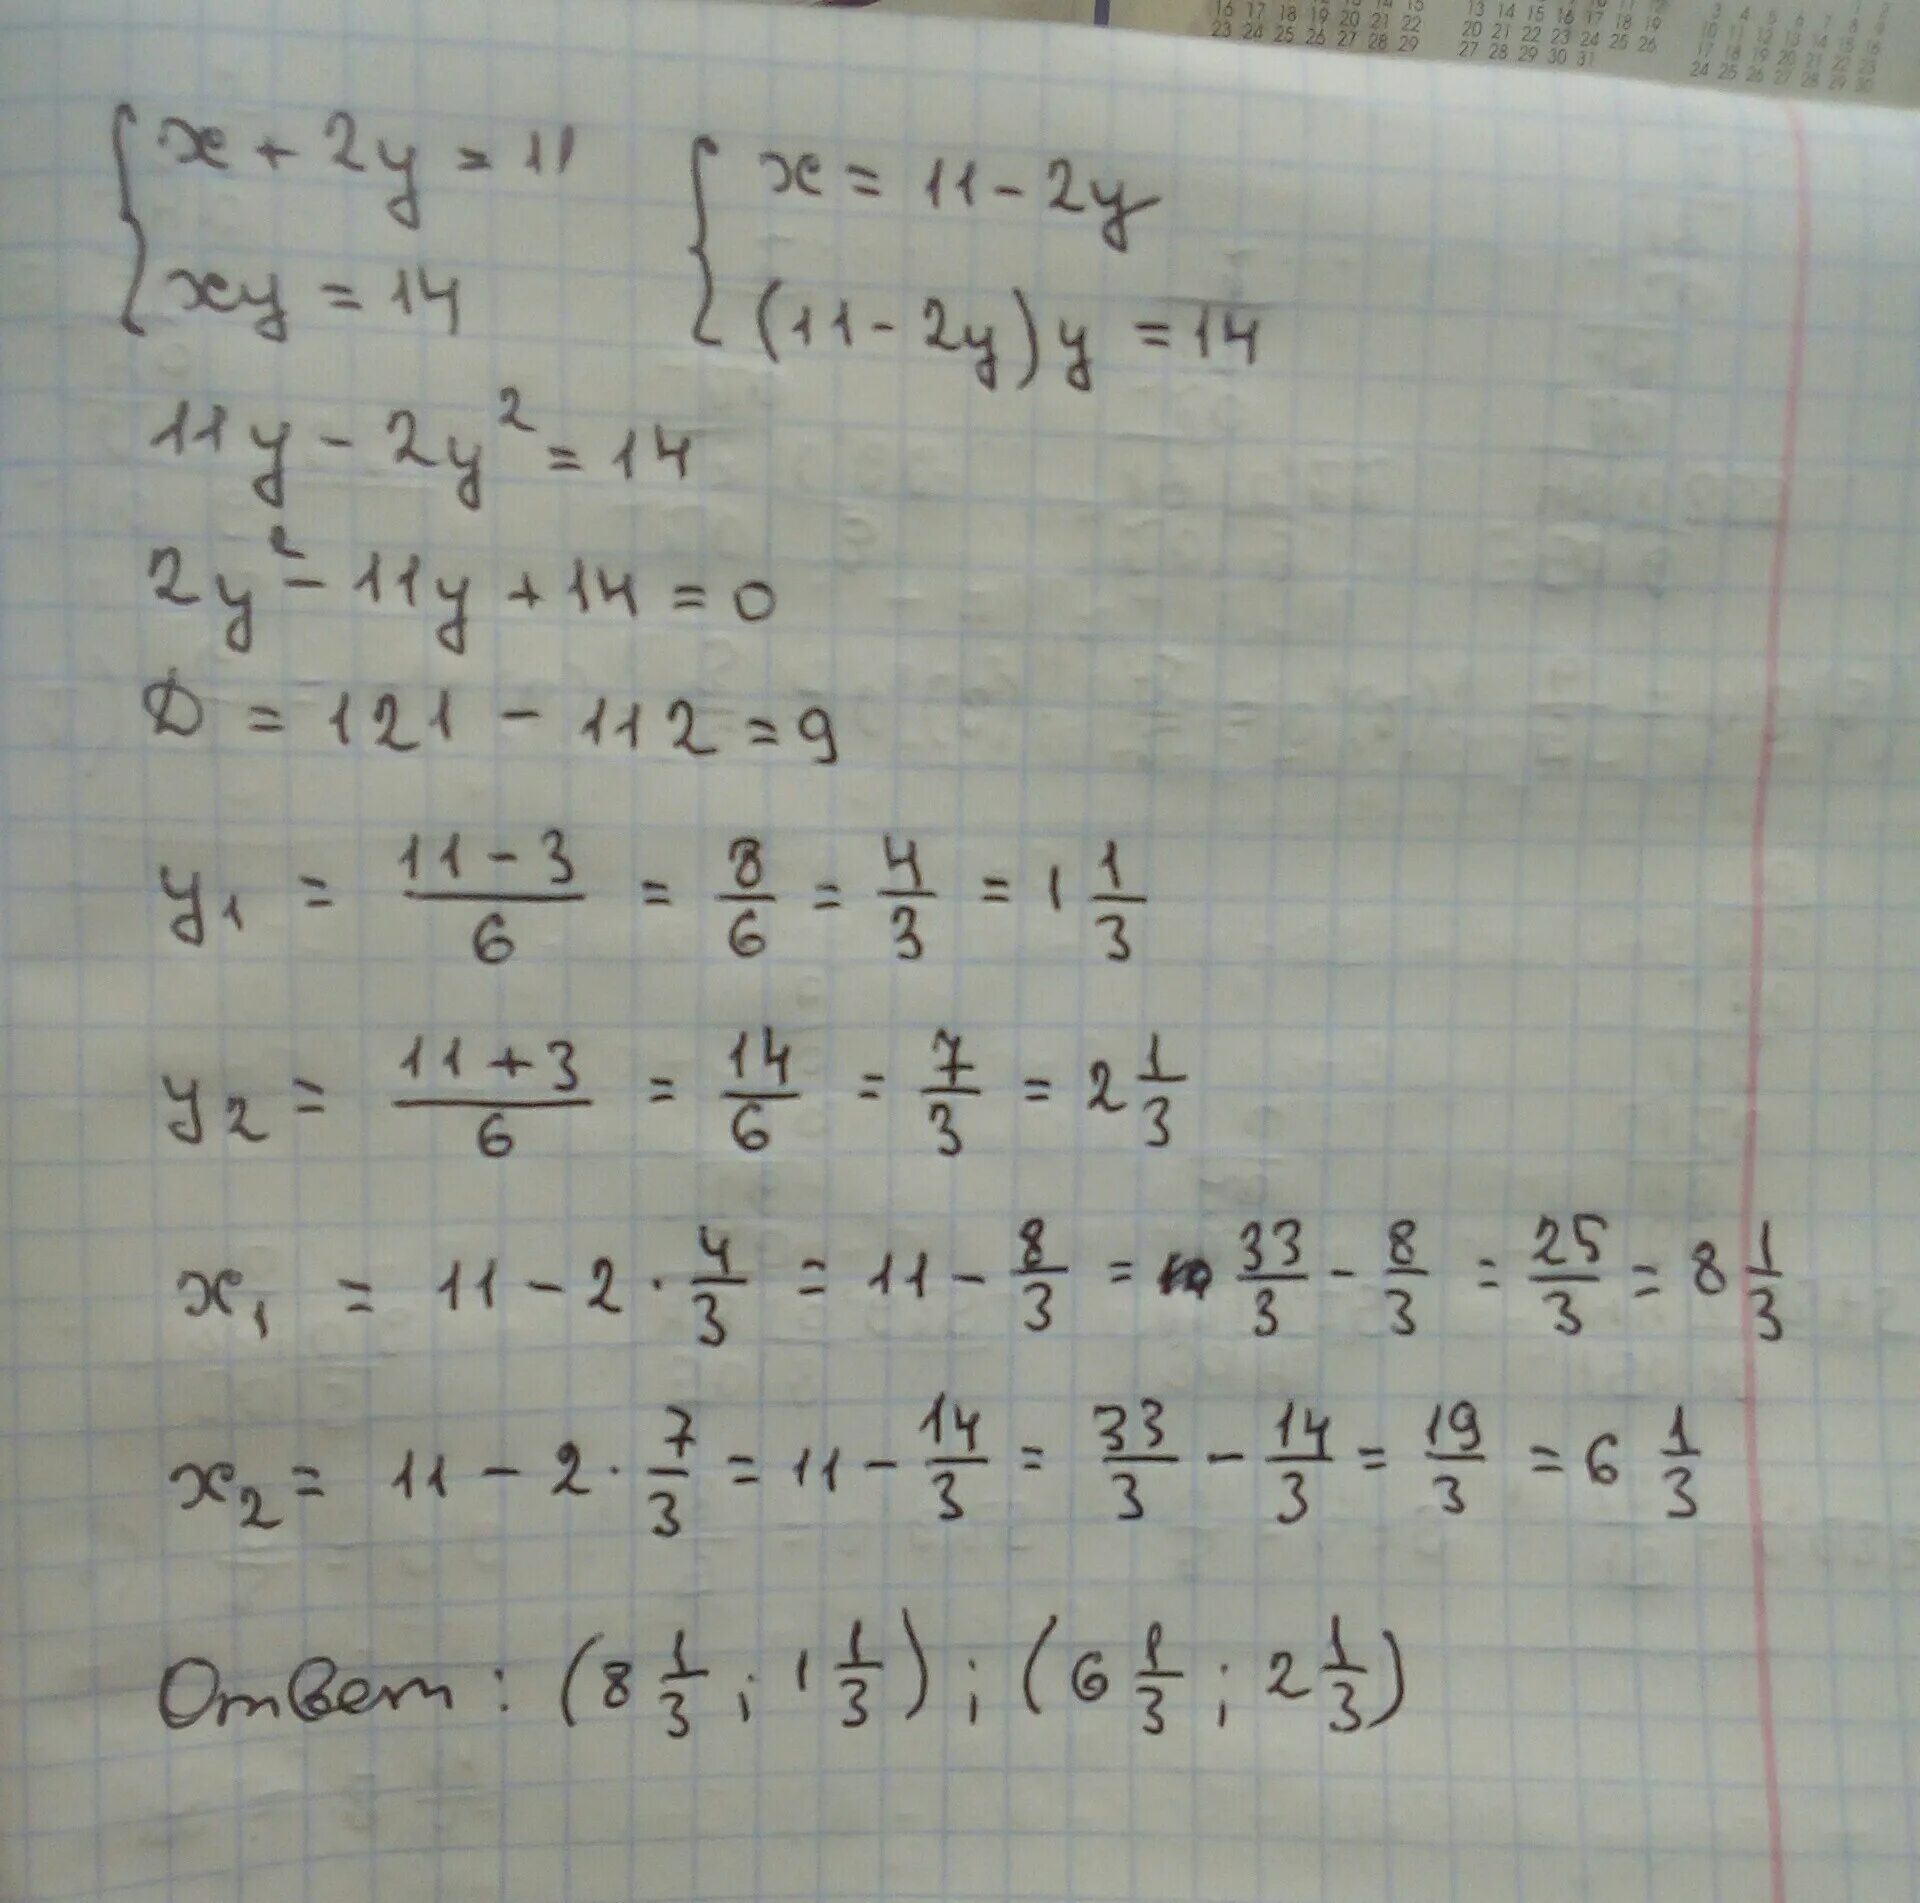 16 17 18 19 20 21 22
23 24 25 26 27 28 29
13 14 15 16 17 18 19
20 21 22 23 24 25 26
27 28 29 30 31
24 25 26 27 28 29 30
{x + 2y = 11 {x = 11 - 2y
xy = 14 (11 - 2y)y = 14
11y - 2y² = 14
2y² - 11y + 14 = 0
D = 121 - 112 = 9
y₁ = (11 - 3)/6 = 8/6 = 4/3 = 1 1/3
y₂ = (11 + 3)/6 = 14/6 = 7/3 = 2 1/3
x₁ = 11 - 2 · 4/3 = 11 - 8/3 = 33/3 - 8/3 = 25/3 = 8 1/3
x₂ = 11 - 2 · 7/3 = 11 - 14/3 = 33/3 - 14/3 = 19/3 = 6 1/3
Ответ: (8 1/3 ; 1 1/3) ; (6 1/3 ; 2 1/3)